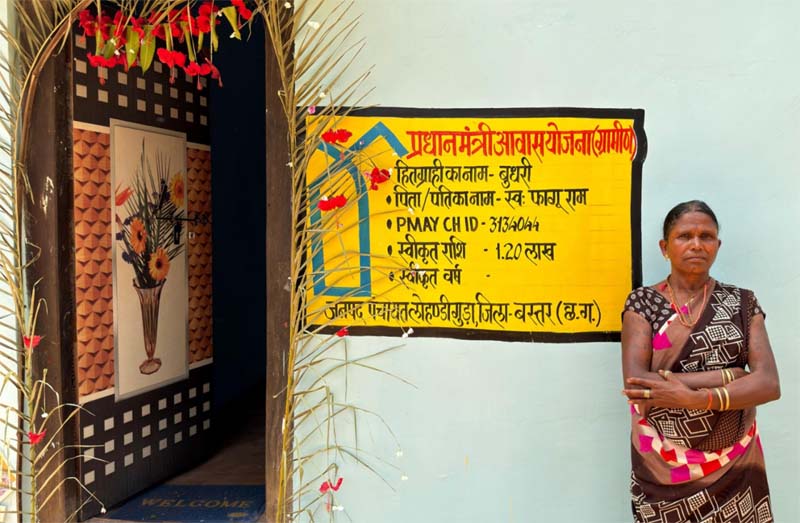 प्रधानमंत्री आवास योजना (ग्रामीण)
• हितग्राही का नाम - बुधरी
• पिता/पति का नाम - स्व: फागू राम
• PMAY CH ID - 3134044
• स्वीकृत राशि - 1.20 लाख
• स्वीकृत वर्ष -
जनपद पंचायत लोहण्डीगुड़ा, जिला - बस्तर (छ.ग.)
WELCOME